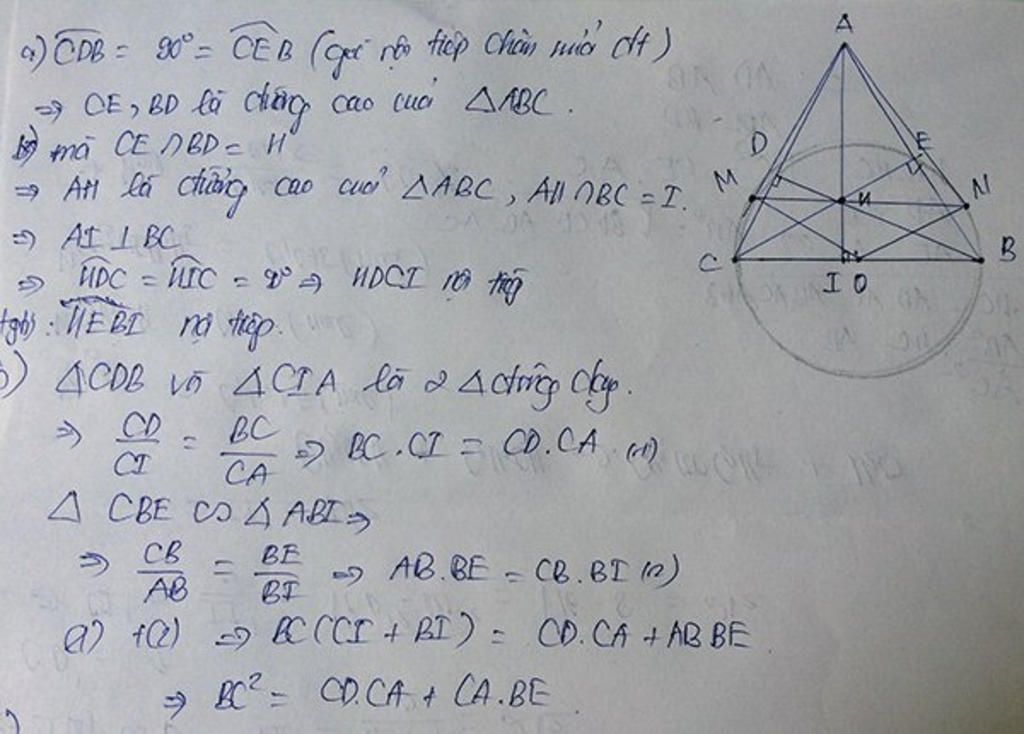 a) CDB = 90° = CEB (góc nội tiếp chắn nửa đt)
⇒ CE, BD là đường cao của △ABC.
mà CE ∩ BD = H
⇒ AH là đường cao của △ABC, AH ∩ BC = I.
⇒ AI ⊥ BC
⇒ HDC = HIC = 90° ⇒ HDCI nội tiếp
HEBI nội tiếp.
b) △CDB và △CIA là 2 △ đồng dạng.
⇒ CD/CI = BC/CA ⇒ BC.CI = CD.CA (1)
△ CBE ∽ △ABI ⇒
⇒ CB/AB = BE/BI ⇒ AB.BE = CB.BI (2)
(1) + (2) ⇒ BC(CI + BI) = CD.CA + AB BE
⇒ BC² = CD.CA + CA.BE
A
D
E
M
H
N
C
B
I O